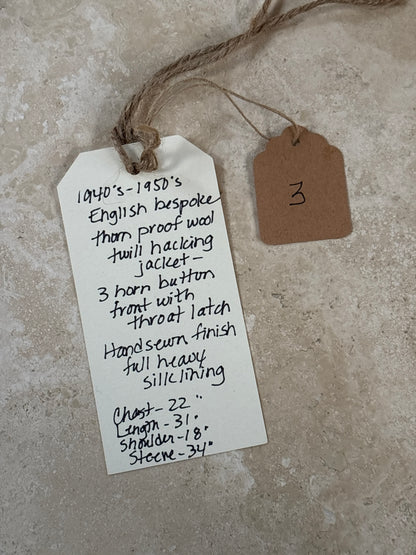 1940's-1950's
English bespoke
thorn proof wool
twill hacking
jacket-
3 horn button
front with
throat latch
Handsewn finish
full heavy
silk lining
Chest-22"
Length-31"
Shoulder-18"
Sleeve-34"
3